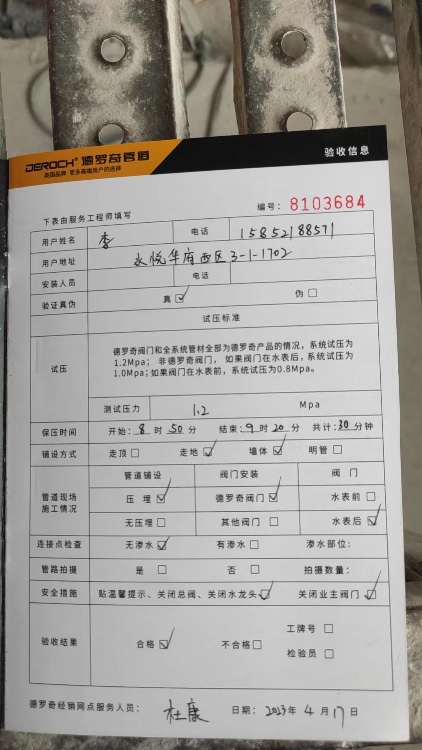 DEROCH® 德罗奇管道
英国品牌·更多高端用户的选择
验收信息
编号: 8103684
下表由服务工程师填写
用户姓名 李 电话 15852188571
用户地址 永悦华府西区3-1-1702
安装人员 电话
验证真伪 真 ☑ 伪 □
试压标准
试压 德罗奇阀门和全系统管材全部为德罗奇产品的情况，系统试压为
1.2Mpa； 非德罗奇阀门， 如果阀门在水表后，系统试压为
1.0Mpa；如果阀门在水表前，系统试压为0.8Mpa。
测试压力 1.2 Mpa
保压时间 开始: 8 时 50 分 结束: 9 时 20 分 共计: 30 分钟
铺设方式 走顶 □ 走地 ☑ 墙体 ☑ 明管 □
管道现场施工情况 管道铺设 阀门安装 阀 门
压 埋 ☑ 德罗奇阀门 ☑ 水表前 □
无压埋 □ 其他阀门 □ 水表后 ☑
连接点检查 无渗水 ☑ 有渗水 □ 渗水部位:
管路拍摄 是 □ 否 □ 拍摄数量:
安全措施 贴温馨提示、关闭总阀、关闭水龙头 ☑ 关闭业主阀门 ☑
验收结果 合格 ☑ 不合格 □ 工牌号 □
检验员 □
德罗奇经销网点服务人员: 杜康 日期: 2023 年 4 月 17 日